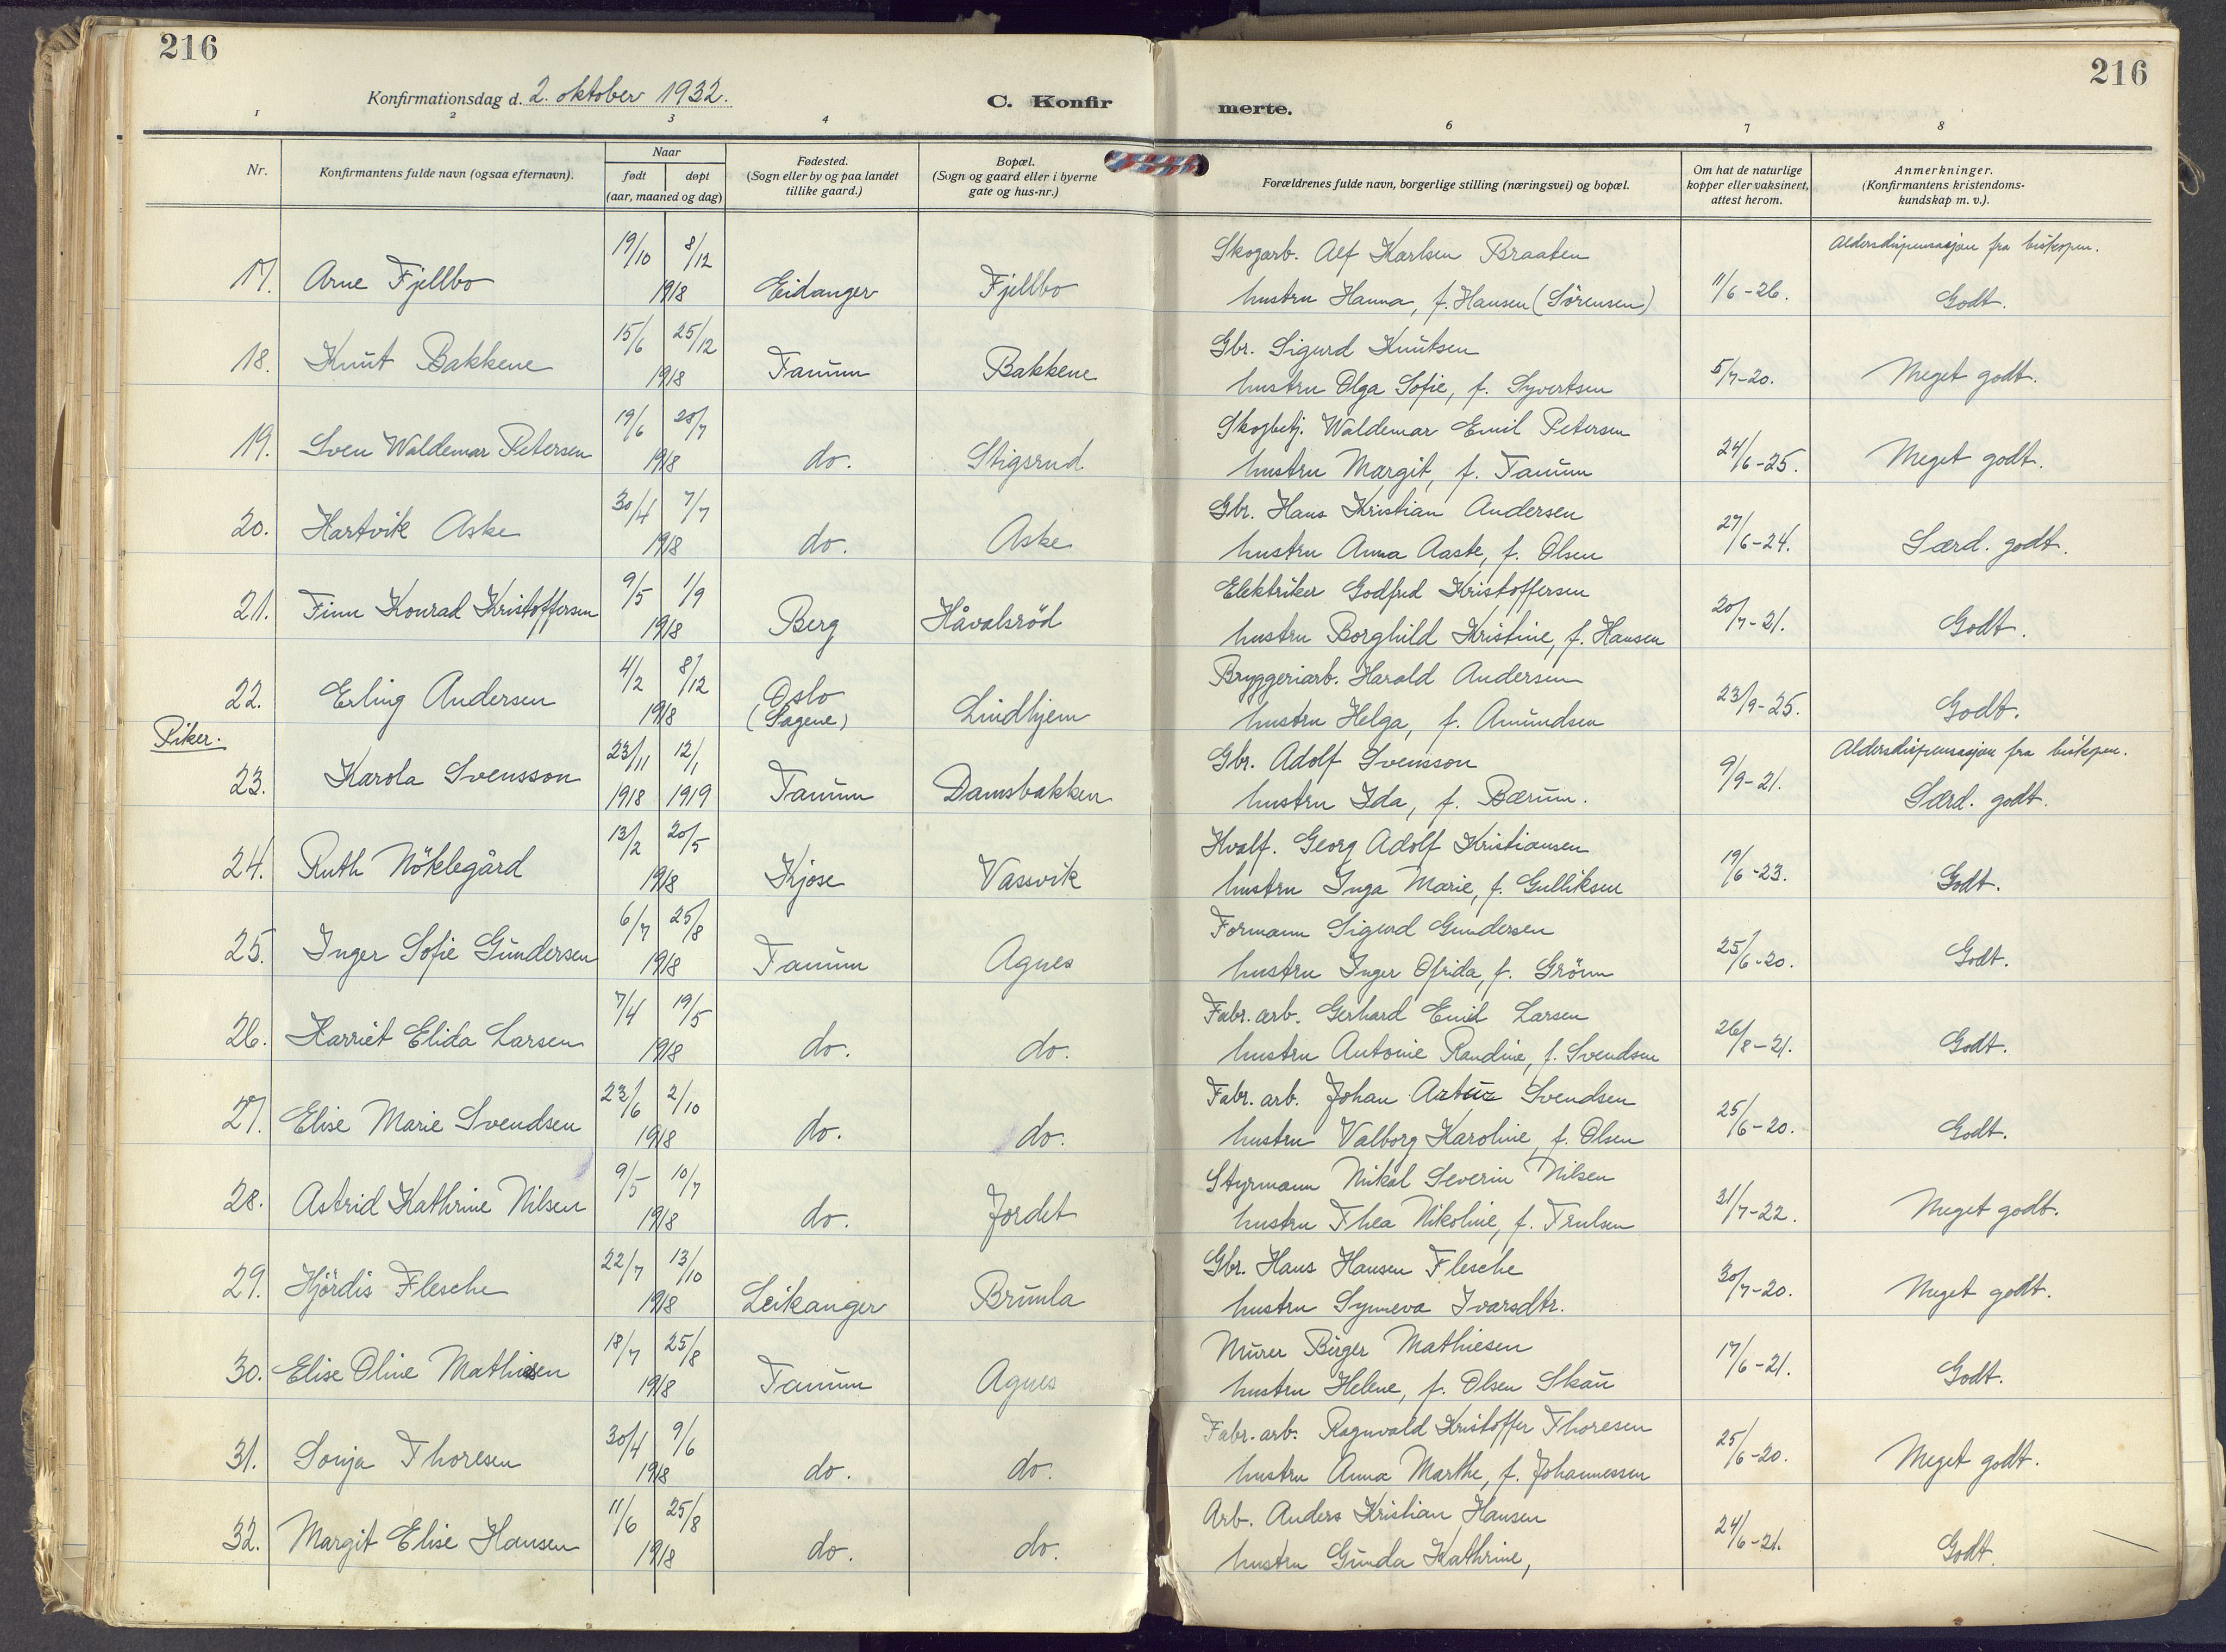 216
216
Konfirmationsdag d. 2. oktober 1932.
C. Konfir
merte.
1 2 3 4 6 7 8
Nr.
Konfirmantens fulde navn (ogsaa efternavn).
Naar
født døpt
(aar, maaned og dag)
Fødested.
(Sogn eller by og paa landet
tillike gaard.)
Bopæl.
(Sogn og gaard eller i byerne
gate og hus-nr.)
Forældrenes fulde navn, borgerlige stilling (næringsvei) og bopæl.
Om hat de naturlige
kopper eller vaksinert,
attest herom.
Anmerkninger.
(Konfirmantens kristendoms-
kundskap m. v.).
19/10 8/12 Skogarb. Alf Karlsen Braaten Aldersdispensasjon fra biskopen.
17. Arne Fjellbo 1918 Eidanger Fjellbo hustru Hanna, f. Hansen (Sörensen) 11/6-26. Godt.
15/6 25/12 Gbr. Sigurd Knutsen
18. Knut Bakkene 1918 Tanum Bakkene hustru Olga Sofie, f. Syvertsen 5/7-20. Meget godt.
19/6 28/7 Skogbetj. Waldemar Emil Petersen
19. Sven Waldemar Petersen 1918 do. Stigsrud hustru Margit, f. Tanum 24/6-25. Meget godt.
30/4 7/7 Gbr. Hans Kristian Andersen
20. Hartvik Aske 1918 do. Aske hustru Anna Aaste, f. Olsen 27/6-24. Særd. godt.
9/5 1/9 Elektriker Godfred Kristoffersen
21. Finn Konrad Kristoffersen 1918 Berg Håvalsröd hustru Borghild Kristine, f. Hansen 20/7-21. Godt.
4/2 8/12 Bryggeriarb. Harald Andersen
22. Erling Andersen 1918 Oslo (Sagene) Lindhjem hustru Helga, f. Amundsen 23/9-25. Godt.
Piker.
23/11 12/1 Gbr. Adolf Svensson Aldersdispensasjon fra biskopen.
23. Karola Svensson 1918 1919 Tanum Damsbakken hustru Ida, f. Bærum. 9/9-21. Særd. godt.
13/2 20/5 Hvalf. Georg Adolf Kristiansen
24. Ruth Nöklegård 1918 Kjose Vassvik hustru Inga Marie, f. Gulliksen 19/6-23. Godt.
6/7 25/8 Formann Sigurd Gundersen
25. Inger Sofie Gundersen 1918 Tanum Agnes hustru Inger Ofrida, f. Grönn 25/6-20. Godt.
7/4 19/5 Fabr. arb. Gerhard Emil Larsen
26. Harriet Elida Larsen 1918 do. do. hustru Antonie Randine, f. Svendsen 26/8-21. Godt.
23/6 2/10 Fabr. arb. Johan Artur Svendsen
27. Elise Marie Svendsen 1918 do. do. hustru Valborg Karoline, f. Olsen 25/6-20. Godt.
9/5 10/7 Styrmann Nikal Severin Nilsen
28. Astrid Kathrine Nilsen 1918 do. Jordet hustru Thea Nikoline, f. Trulsen 31/7-22. Meget godt.
22/7 13/10 Gbr. Hans Hansen Flesche
29. Hjördis Flesche 1918 Leikanger Brunla hustru Synneva Ivarsdtr. 30/7-20. Meget godt.
18/7 25/8 Murer Birger Mathiesen
30. Elise Oline Mathisen 1918 Tanum Agnes hustru Helene, f. Olsen Skau 17/6-21. Godt.
30/4 9/6 Fabr. arb. Ragnvald Kristoffer Thoresen
31. Sonja Thoresen 1918 do. do. hustru Anna Marthe, f. Johannessen 25/6-20. Meget godt.
11/6 25/8 Arb. Anders Kristian Hansen
32. Margit Elise Hansen 1918 do. do. hustru Gunda Kathrine, 24/6-21. Godt.